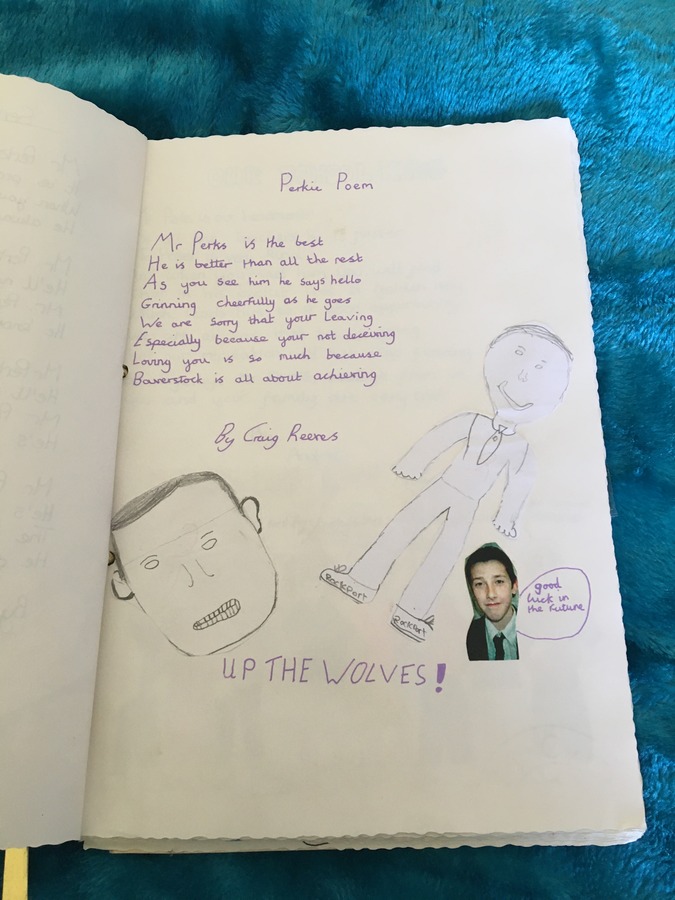 Perkie Poem
Mr Perks is the best
He is better than all the rest
As you see him he says hello
Grinning cheerfully as he goes
We are sorry that your Leaving
Especially because your not deceiving
Loving you is so much because
Baverstock is all about achieving
By Craig Reeves
Rockport
Rockport
good
luck in
the Future
UP THE WOLVES!